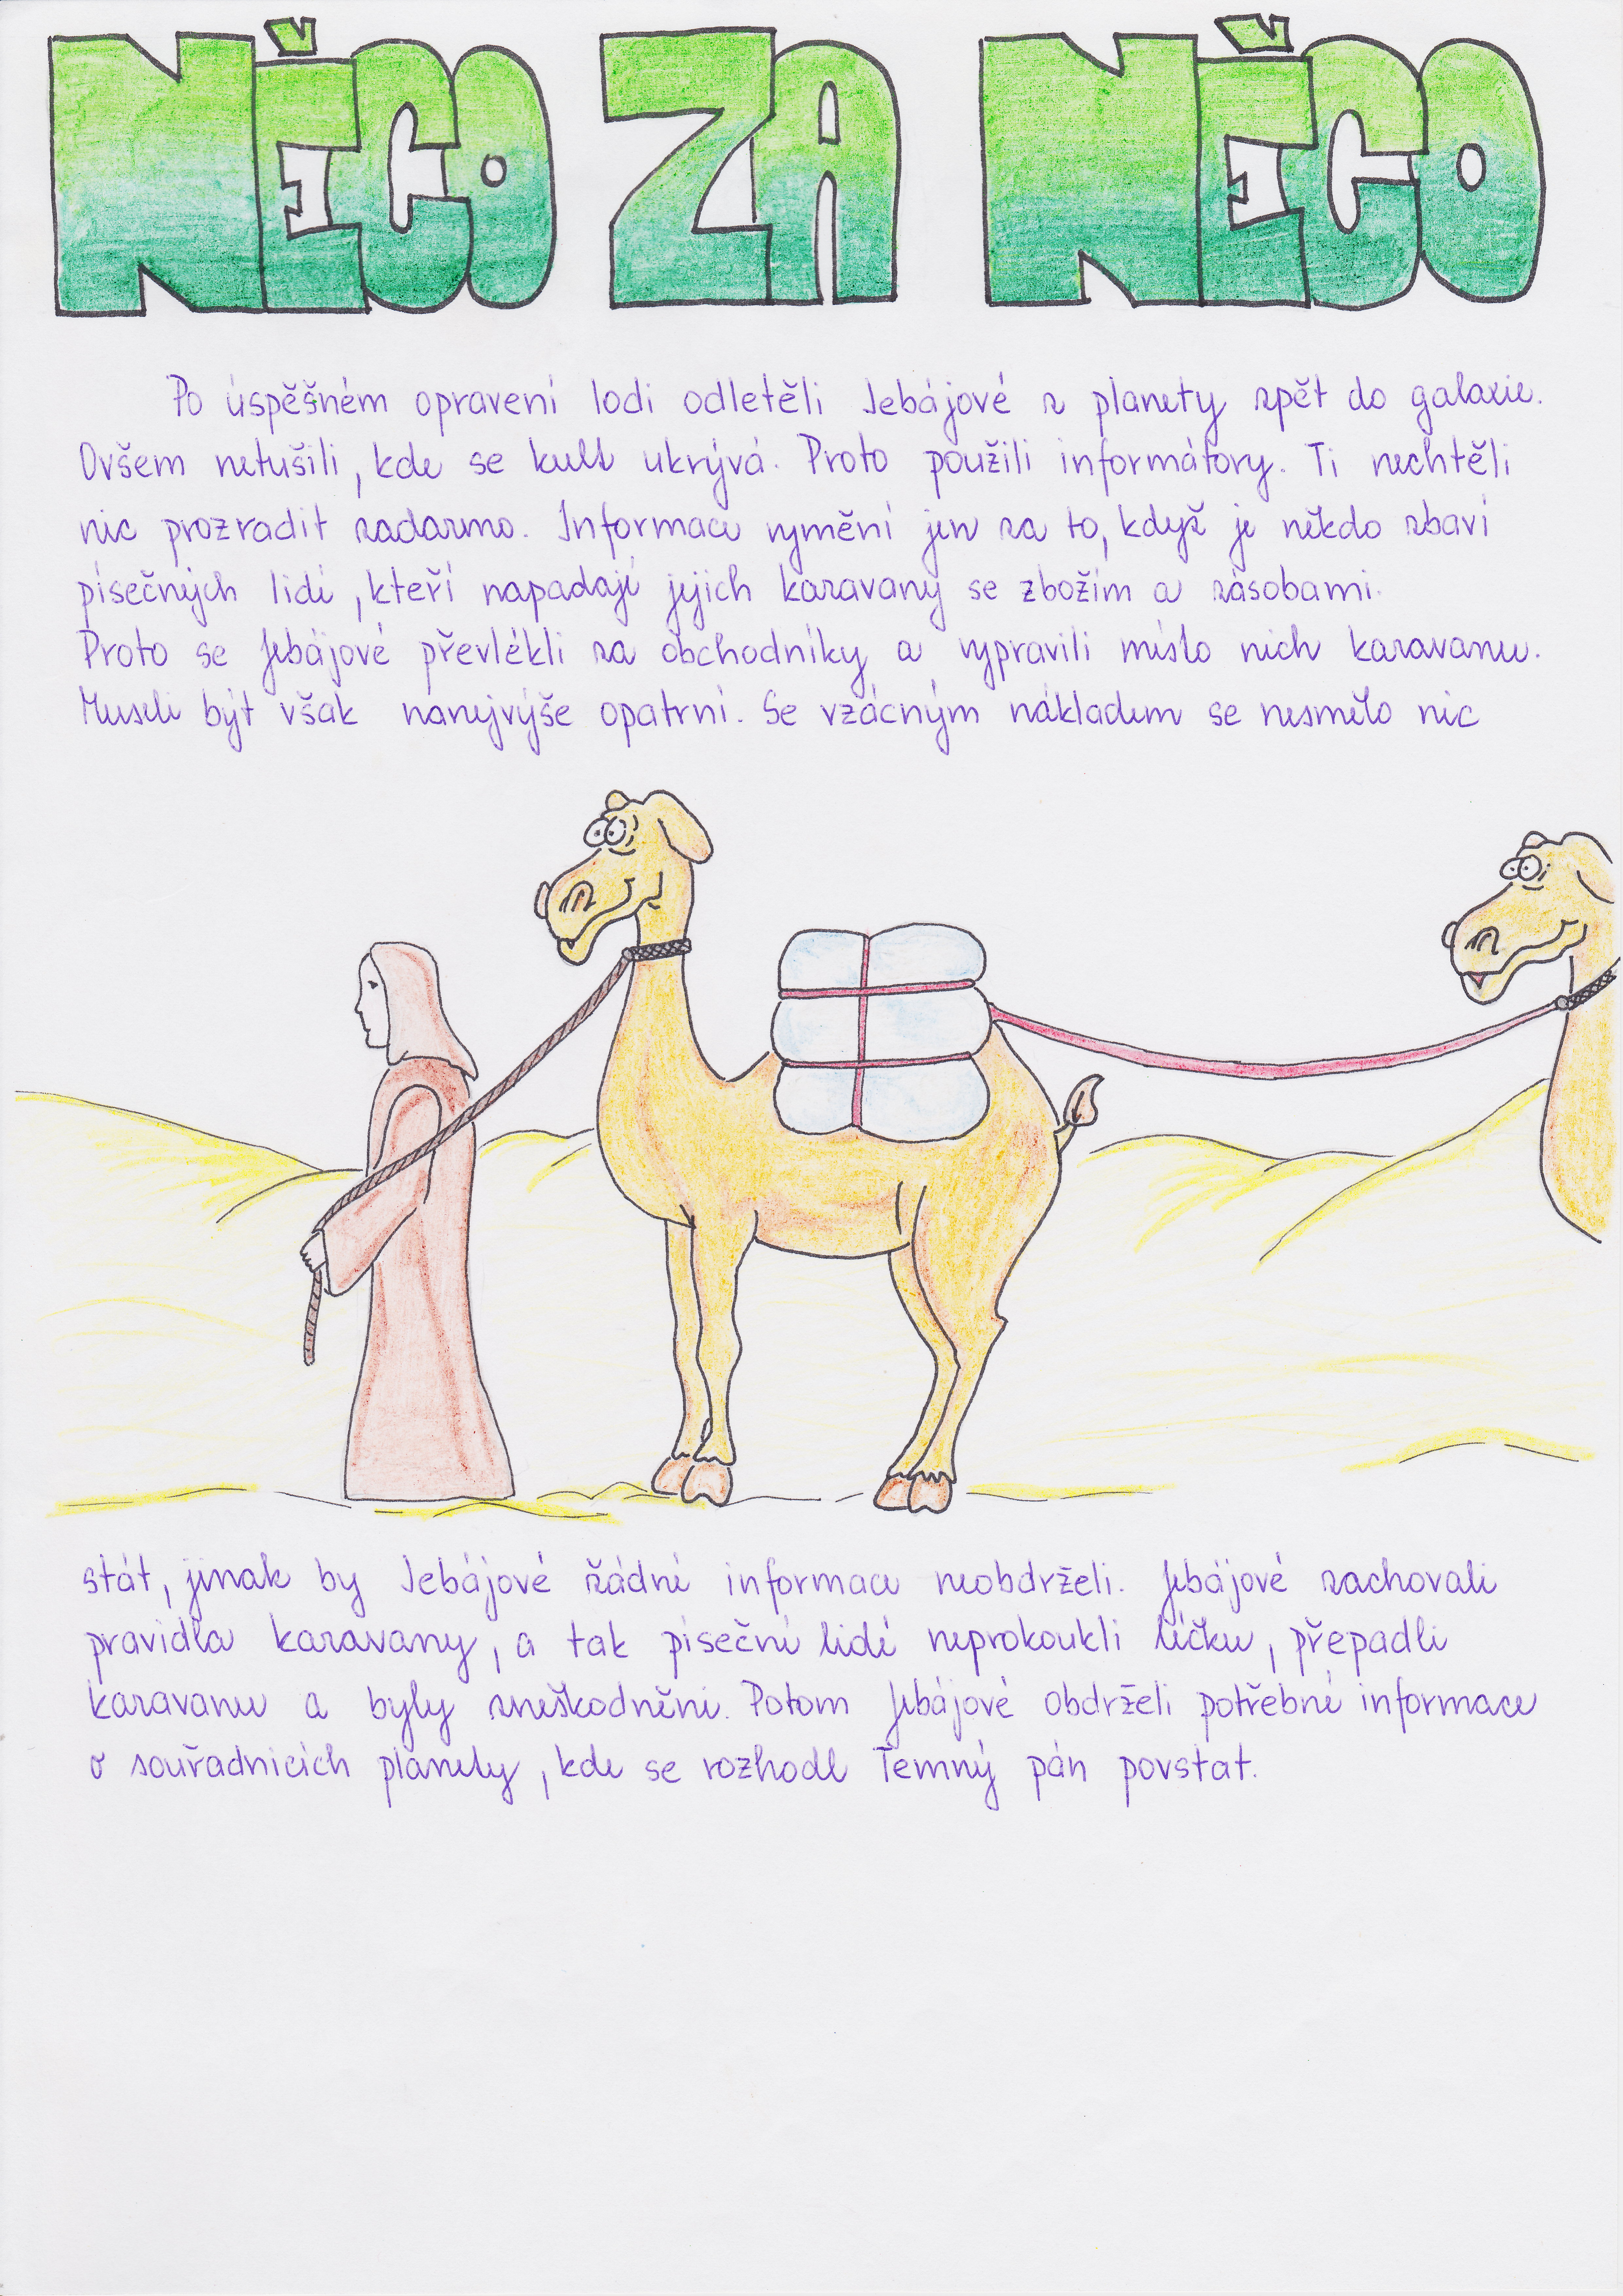 NĚCO ZA NĚCO
Po úspěšném opravení lodi odletěli Jebájové z planety zpět do galaxie.
Ovšem netušili, kde se kult ukrývá. Proto použili informátory. Ti nechtěli
nic prozradit zadarmo. Informace vymění jen za to, když je někdo zbaví
písečných lidí, kteří napadají jejich karavany se zbožím a zásobami.
Proto se Jebájové převlékli za obchodníky a vypravili místo nich karavanu.
Museli být však nanejvýše opatrní. Se vzácným nákladem se nesmělo nic
stát, jinak by Jebájové žádné informace neobdrželi. Jebájové zachovali
pravidla karavany, a tak píseční lidé neprokoukli léčku, přepadli
karavanu a byly zneškodněni. Potom Jebájové obdrželi potřebné informace
o souřadnicích planety, kde se rozhodl Temný pán povstat.